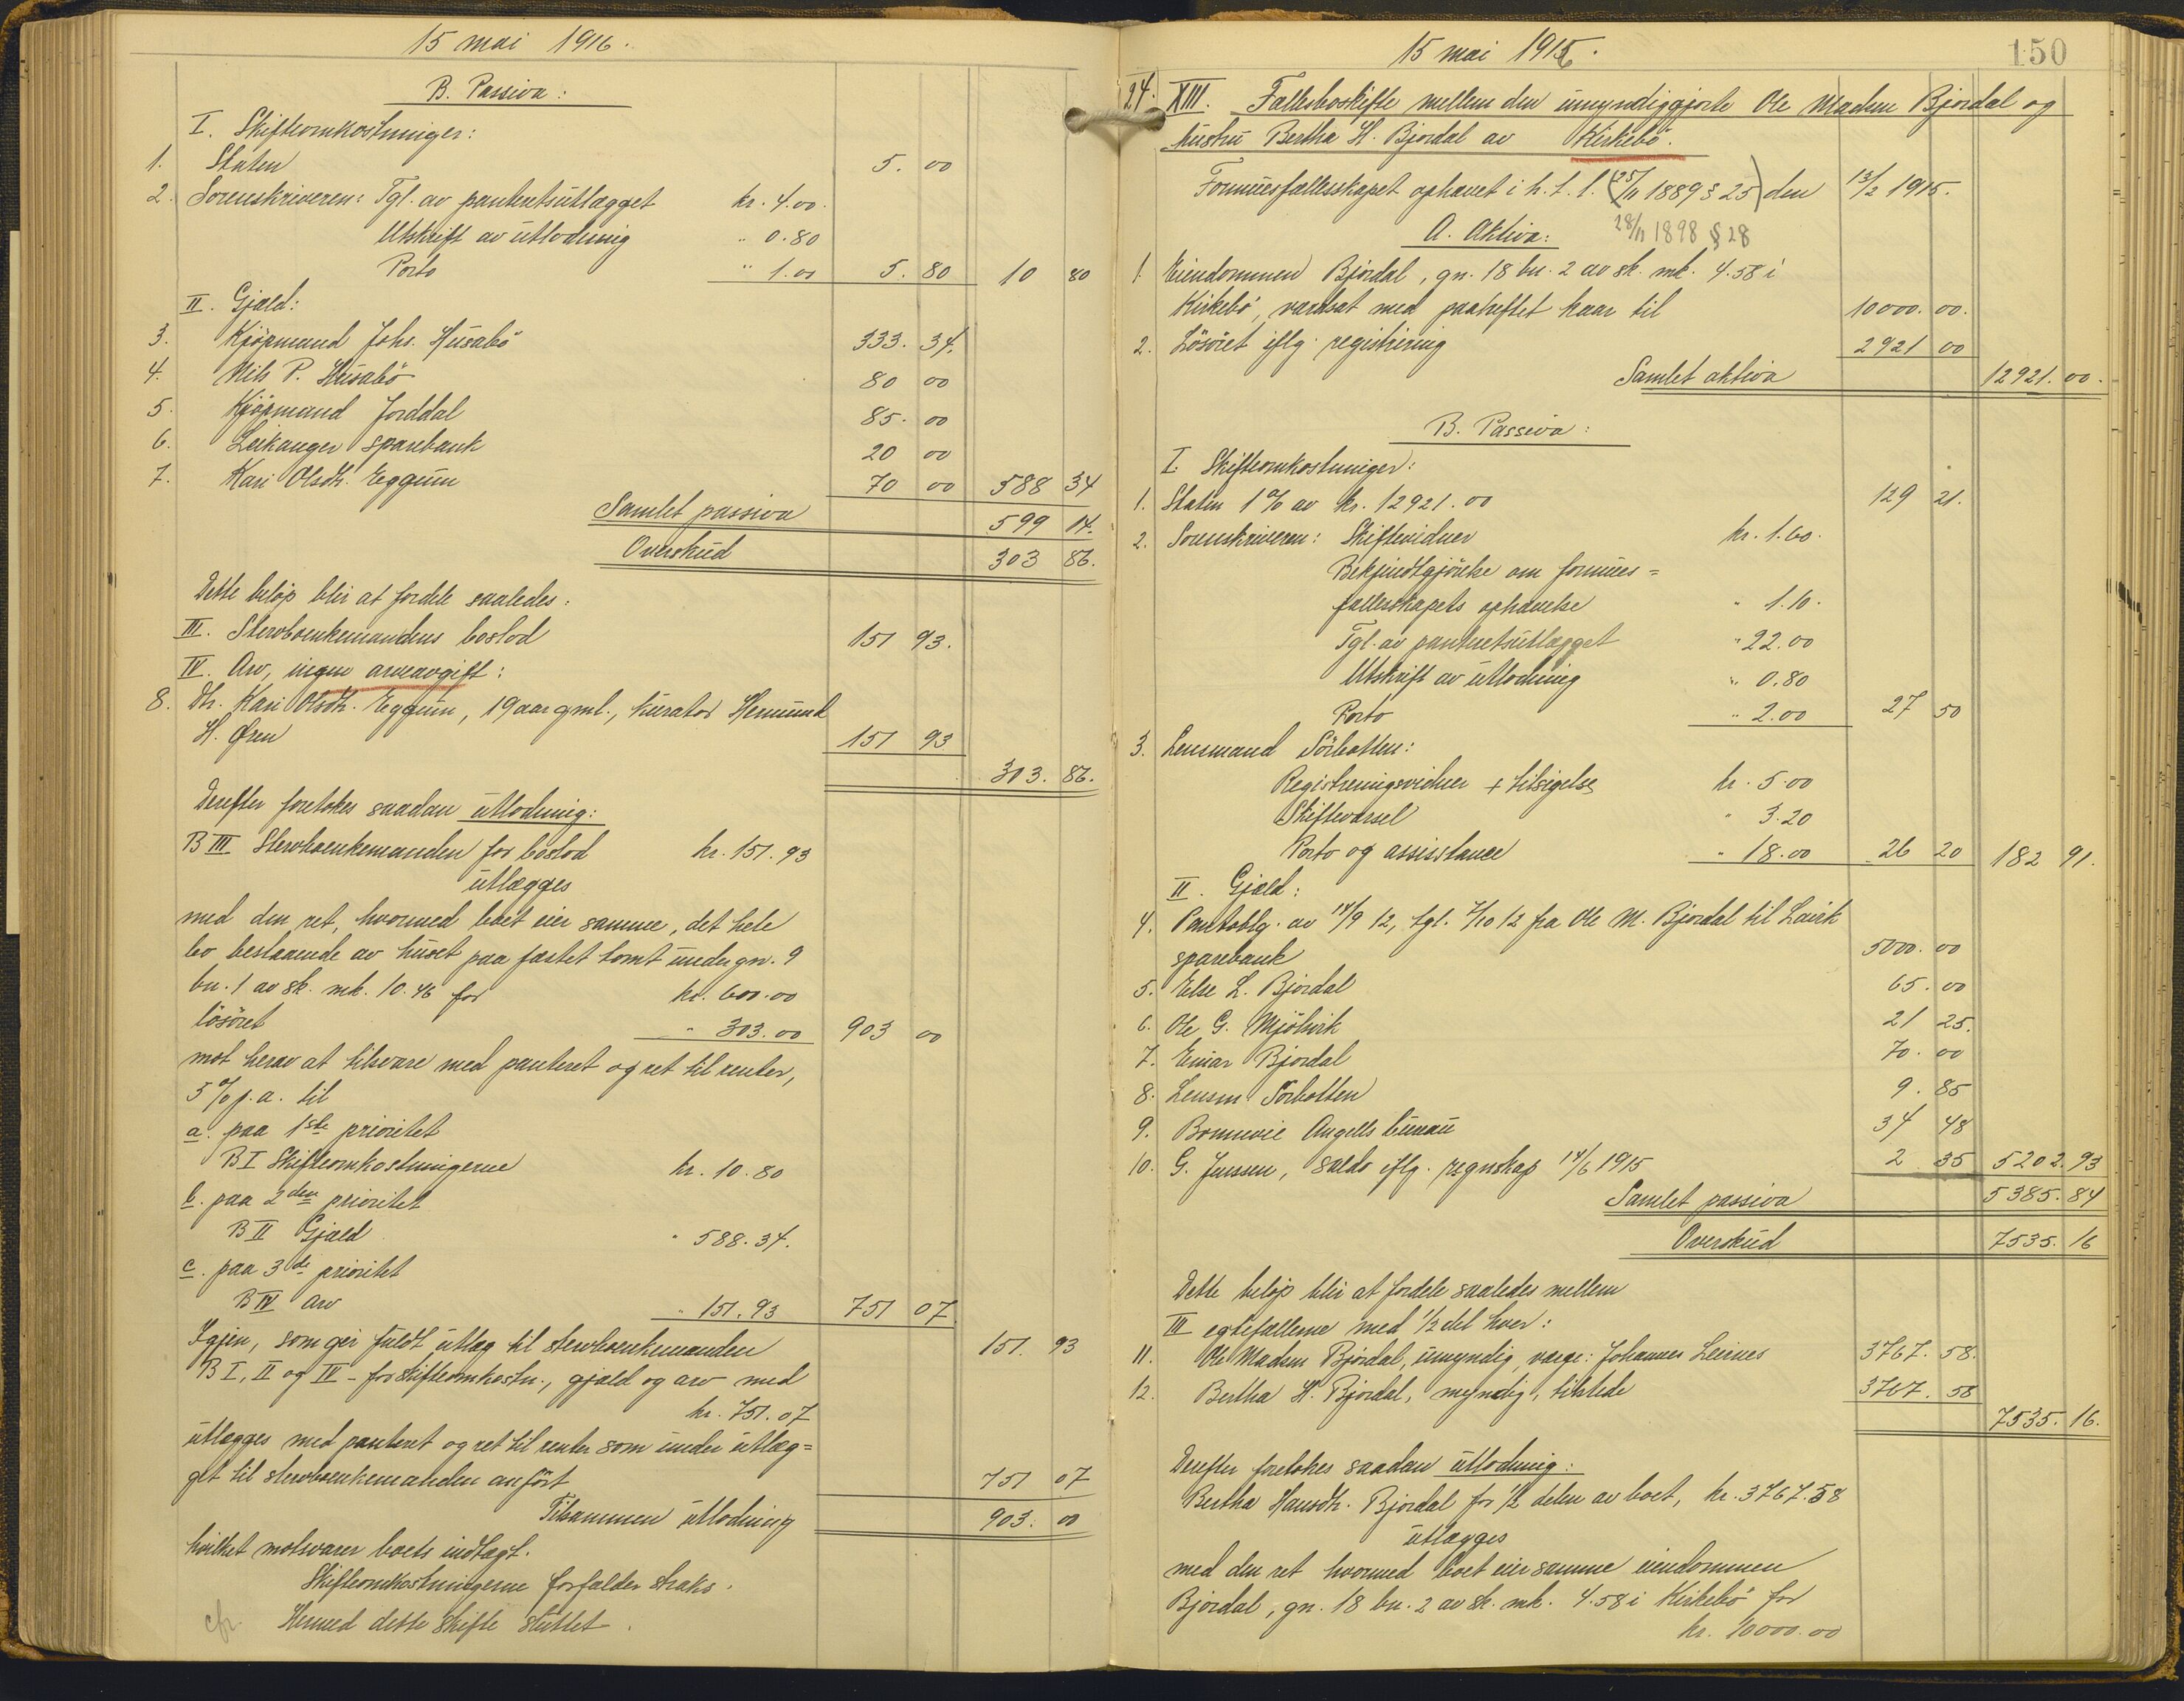 15 mai 1916.
B. Passiva:
I. Skifteomkostninger:
1. Staten 5. 00
2. Sorenskriveren: Tgl. av panteretsutlægget kr. 4.00.
Utskrift av utlodning " 0.80
Porto " 1.00 5. 80 10 80
II. Gjæld:
3. Kjöpmand Johs. Husabö 333. 34.
4. Nils P. Husabö 80 00
5. Kjöpmand Jorddal 85. 00
6. Leikanger sparebank 20 00
7. Kari Olsdtr. Eggum 70 00 588 34
Samlet passiva 599 14.
Overskud 303 86.
Dette belöp blir at fordele saaledes:
III. Stervboenkemandens boslod 151 93.
IV. Arv, ingen arveavgift:
8. Dtr. Kari Olsdtr. Eggum, 19 aar gml., kurator Hermund
H. Øren 151 93
303. 86.
Derefter foretokes saadan utlodning:
B III Stervboenkemanden for boslod kr. 151.93
utlægges
med den ret, hvormed boet eier samme, det hele
bo bestaaende av huset paa fæstet tomt under gn. 9
bn. 1 av sk. mk. 10.46 for kr. 600.00
lösöret " 303.00 903 00
mot herav at tilsvare med panteret og ret til renter,
5 % p.a. til
a. paa 1ste prioritet
B I Skifteomkostningerne kr. 10.80
b. paa 2den prioritet
B II Gjæld " 588.34.
c. paa 3de prioritet
B IV Arv " 151.93 751 07.
Igjen, som gir fuldt utlæg til stervboenkemanden 151. 93
B I, II og IV - for skifteomkostn., gjæld og arv med
kr. 751.07
utlægges med panteret og ret til renter som under utlæg=
get til stervboenkemanden anfört 751 07
Tilsammen utlodning 903. 00
hvilket motsvarer boets indtægt.
Skifteomkostningerne forfalder straks.
Hermed dette skifte sluttet.
cfr
15 mai 1916.
150
24. XIII. Fællesboskifte mellem den umyndiggjorte Ole Madsen Bjordal og
hustru Bertha H. Bjordal av Kirkebö.
Formuesfællesskapet ophævet i h. t. l. (25/11 1889 § 25) den 13/2 1915.
28/11 1898 § 28
A. Aktiva:
1. Eiendommen Bjordal, gn. 18 bn. 2 av sk. mk. 4.58 i
Kirkebö, værdsat med paaheftet kaar til 10000. 00.
2. Lösöret iflg. registrering 2921 00
Samlet aktiva 12921. 00.
B. Passiva:
I. Skifteomkostninger:
1. Staten 1 % av kr. 12921.00 129 21.
2. Sorenskriveren: Skiftevidner kr. 1.60.
Bekjendtgjörelse om formues=
fællesskapets ophævelse " 1.10.
Tgl. av panteretsutlægget " 22.00
Utskrift av utlodning " 0.80
Porto " 2.00 27 50
3. Lensmand Sörbotten:
Registreringsvidner + tilsigelse kr. 5.00
Skiftevarsel " 3.20
Porto og assisstance " 18.00 26 20 182 91.
II. Gjæld:
4. Pantoblg. av 14/9 12, tgl. 7/10 12 fra Ole M. Bjordal til Lavik
sparebank 5000. 00
5. Else L. Bjordal 65. 00
6. Ole G. Mjölsvik 21 25.
7. Einar Bjordal 70. 00
8. Lensm. Sörbotten 9. 85
9. Bonnevie Angells bureau 34 48
10. G. Jenssen, saldo iflg. regnskap 14/6 1915 2 35 5202. 93
Samlet passiva 5385. 84
Overskud 7535. 16
Dette belöp blir at fordele saaledes mellem
III egtefællerne med 1/2 del hver:
11. Ole Madsen Bjordal, umyndig, værge: Johannes Leirnes 3767. 58.
12. Bertha H. Bjordal, myndig, tilstede 3767. 58
7535. 16.
Derefter foretokes saadan utlodning:
Bertha Hansdtr. Bjordal for 1/2 delen av boet, kr. 3767.58
utlægges
med den ret hvormed boet eier samme eiendommen
Bjordal, gn. 18 bn. 2 av sk. mk. 4.58 i Kirkebö for
kr. 10000.00